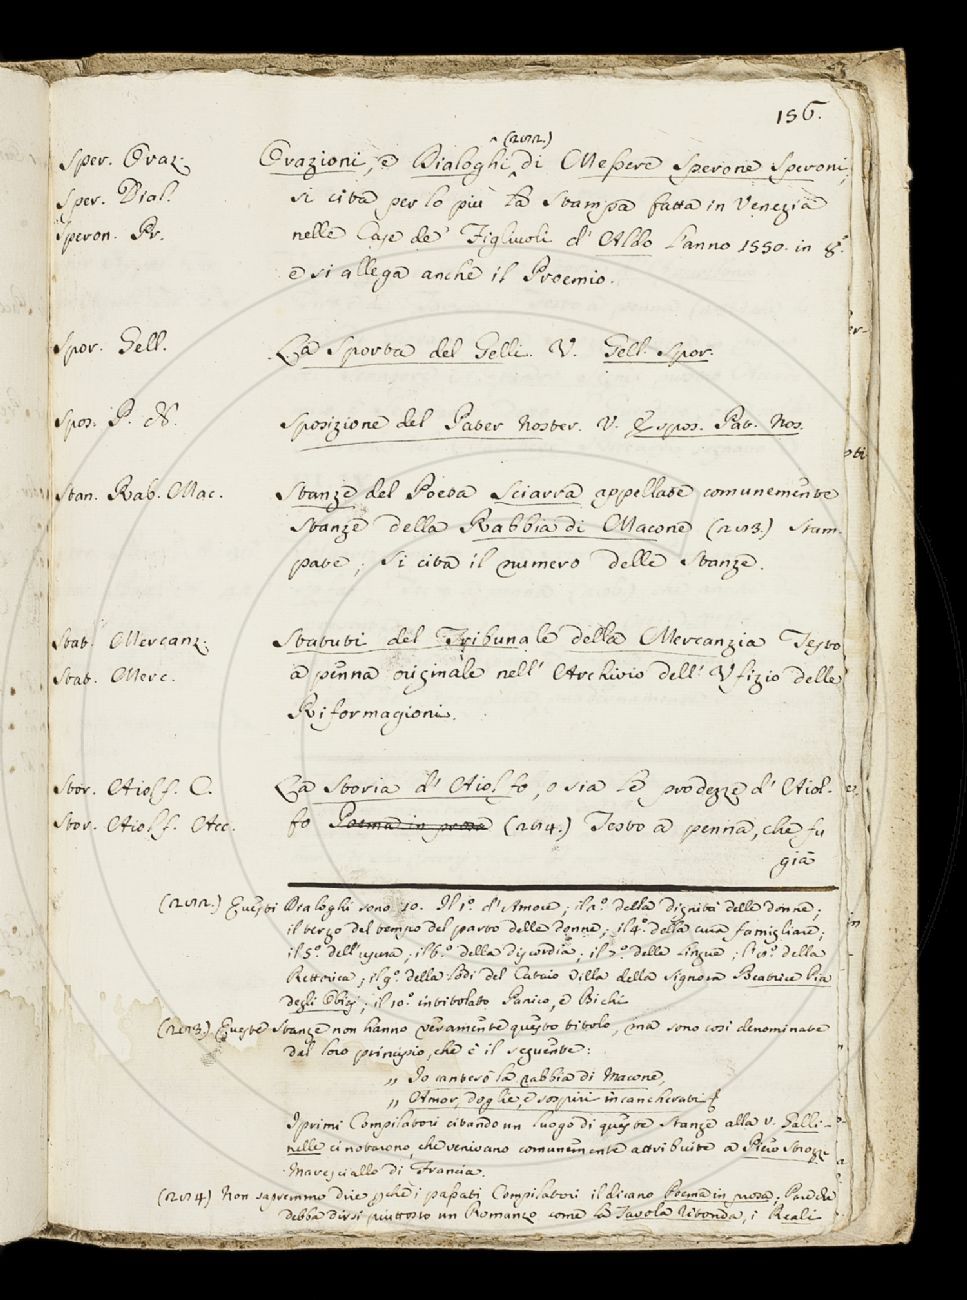 156.
(202.)
Sper. Oraz. Orazioni, e Dialoghi di Messere Sperone Speroni,
Sper. Dial. si cita per lo più la Stampa fatta in Venezia
Speron. Pr. nelle Case de' Figliuoli d' Aldo l'anno 1550. in 8.°
e si allega anche il Proemio.
Spor. Gell. La Sporta del Gelli. V. Gell. Spor.
Spos. P. N. Sposizione del Pater Noster. V. Espos. Pat. Nos.
Stan. Rab. Mac. Stanze del Poeta Sciarra appellate comunemente
Stanze della Rabbia di Macone (203.) Stam-
pate; si cita il numero delle Stanze.
Stat. Mercanz. Statuti del Tribunale della Mercanzia Testo
Stat. Merc. a penna originale nell' Archivio dell' Ufizio delle
Riformagioni.
Stor. Aiolf. C. La Storia d' Aiolfo, o sia le prodezze d' Aiol-
Stor. Aiolf. Acc. fo Poema in prosa (204.) Testo a penna, che fu
già
(202.) Questi Dialoghi sono 10. Il 1.° d' Amore; il 2.° della dignità delle donne;
il terzo del tempo del parto delle donne; il 4.° della cura famigliare;
il 5.° dell' usura; il 6.° della discordia; il 7.° delle lingue; l' 8.° della
Rettorica; il 9.° delle lodi del Cataio Villa della Signora Beatrice Pia
degli Obizj; il 10.° intitolato Panico, e Bichi.
(203.) Queste Stanze non hanno veramente questo titolo, ma sono così denominate
dal loro principio, che è il seguente:
„ Io canterò la rabbia di Macone,
„ Amor, doglie, e sospiri incancherati
I primi Compilatori citando un luogo di queste Stanze alla v. Galli-
nelle ci notarono, che venivano comunemente attribuite a Piero Strozzi
Maresciallo di Francia.
(204) Non sapremmo dire pchè i passati Compilatori il dicano Poema in prosa; Parche
debba dirsi piuttosto un Romanzo come la Tavola Ritonda, i Reali